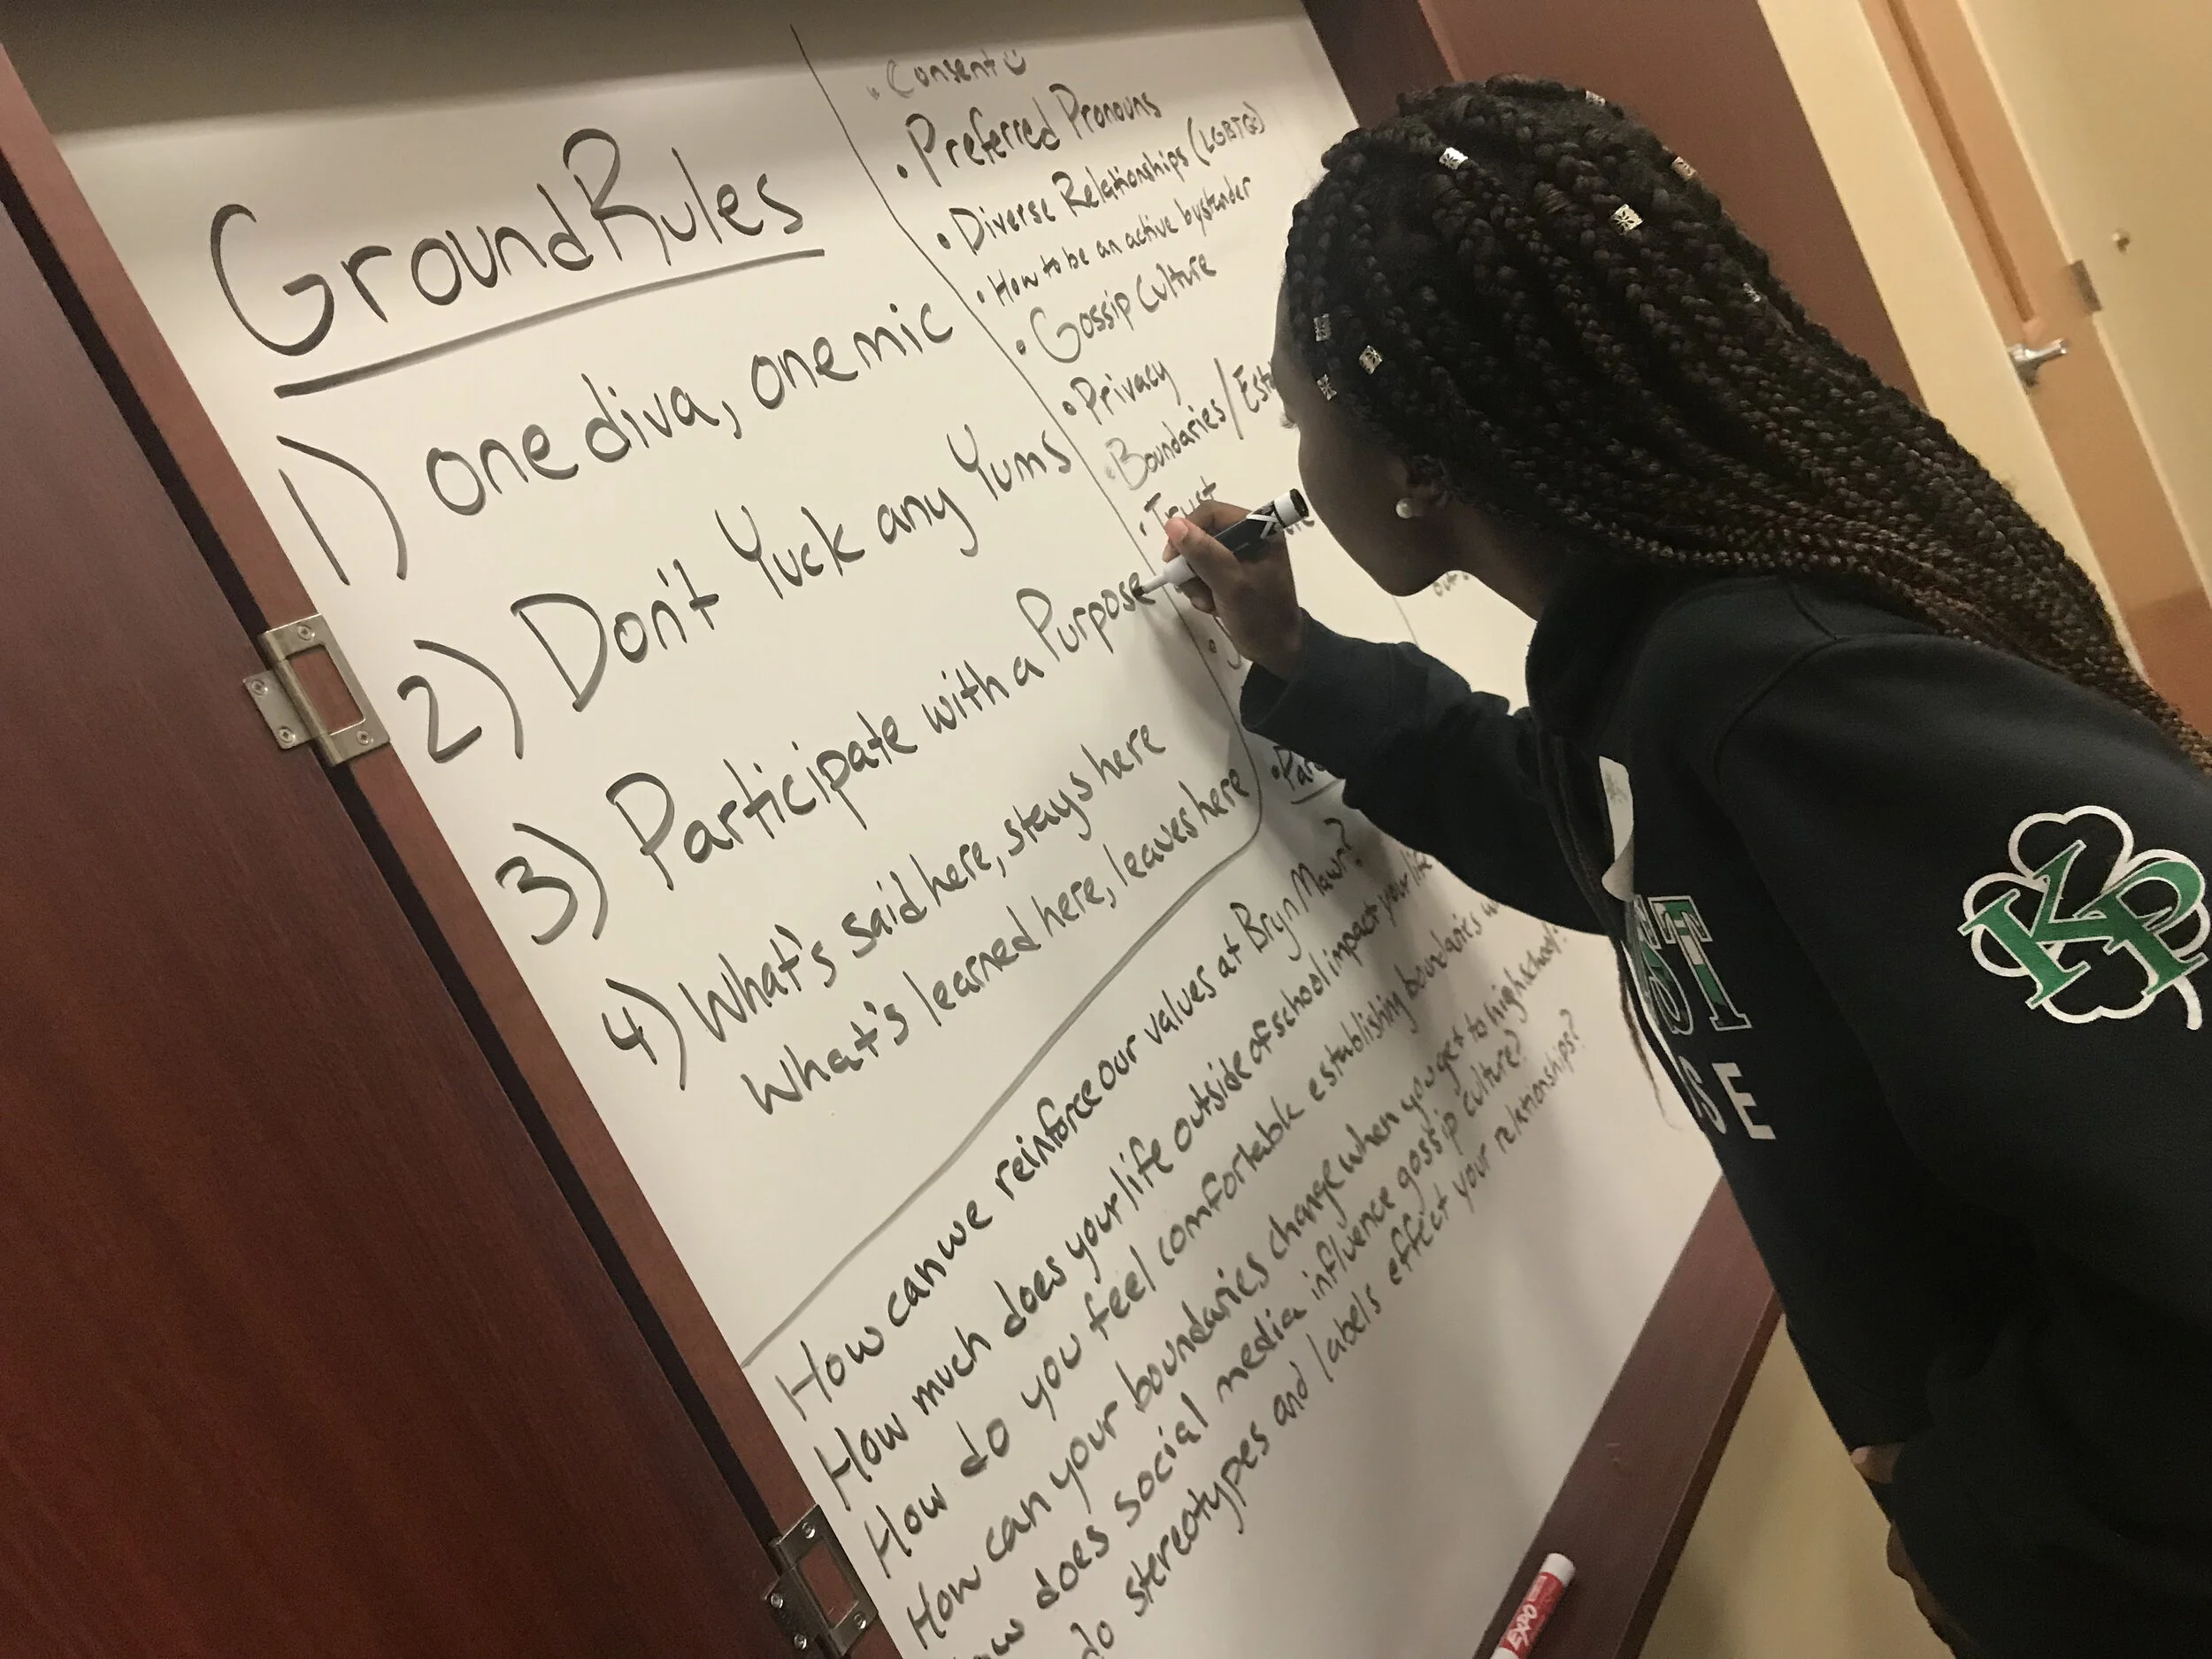 Ground Rules
1) one diva, one mic
2) Don't Yuck any Yums
3) Participate with a Purpose
4) What's said here, stays here
What's learned here, leaves here
• Consent
• Preferred Pronouns
• Diverse Relationships (LGBTQ)
• How to be an active bystander
• Gossip Culture
• Privacy
• Boundaries/
• Trust
How can we reinforce our values at Bryn Mawr?
How much does your life outside of school impact your life
How do you feel comfortable establishing boundaries
How can your boundaries change when you get to high school?
does social media influence gossip culture?
do stereotypes and labels effect your relationships?
KP
ST
SE
EXPO